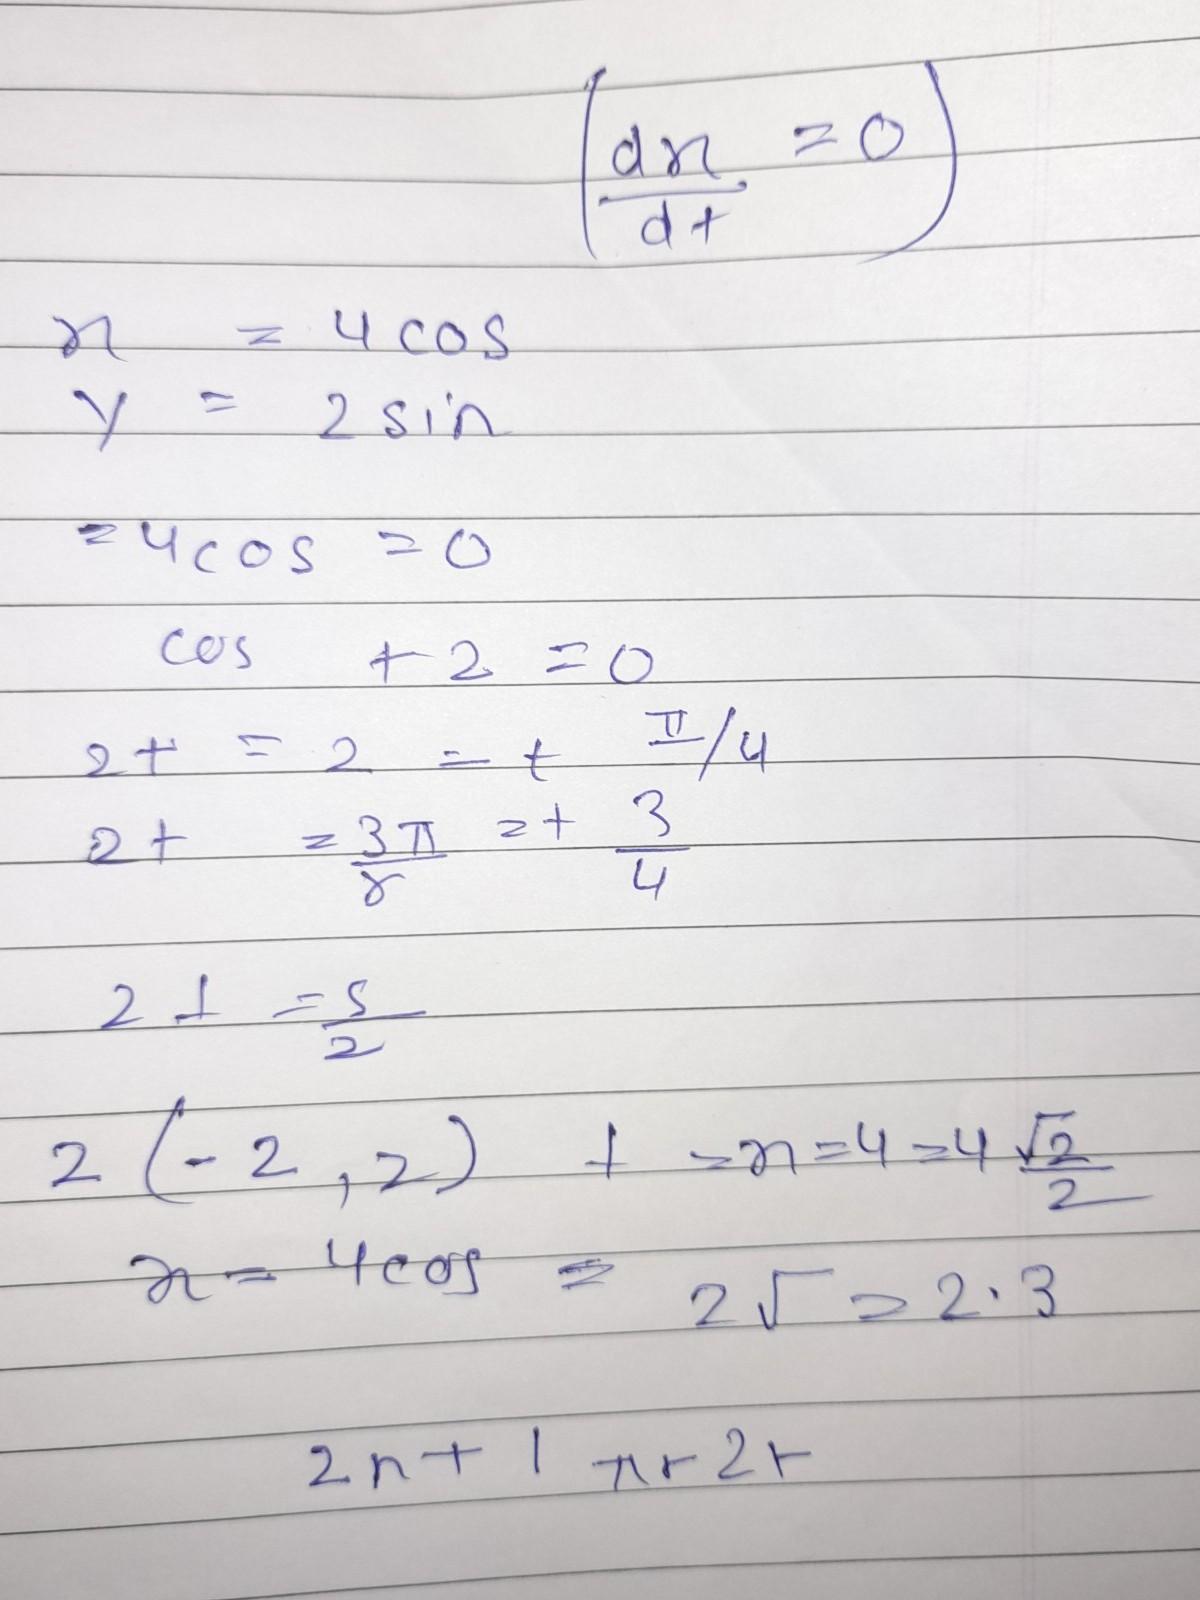 (dx/dt = 0)
x = 4 cos
y = 2 sin
= 4 cos = 0
cos + 2 = 0
2t = 2 = t π/4
2t = 3π/r = t 3/4
2 1 = 5/2
2 (-2, 2) t = x = 4 = 4 √2/2
x = 4 cos = 2√ = 2.3
2n + 1 πr 2r